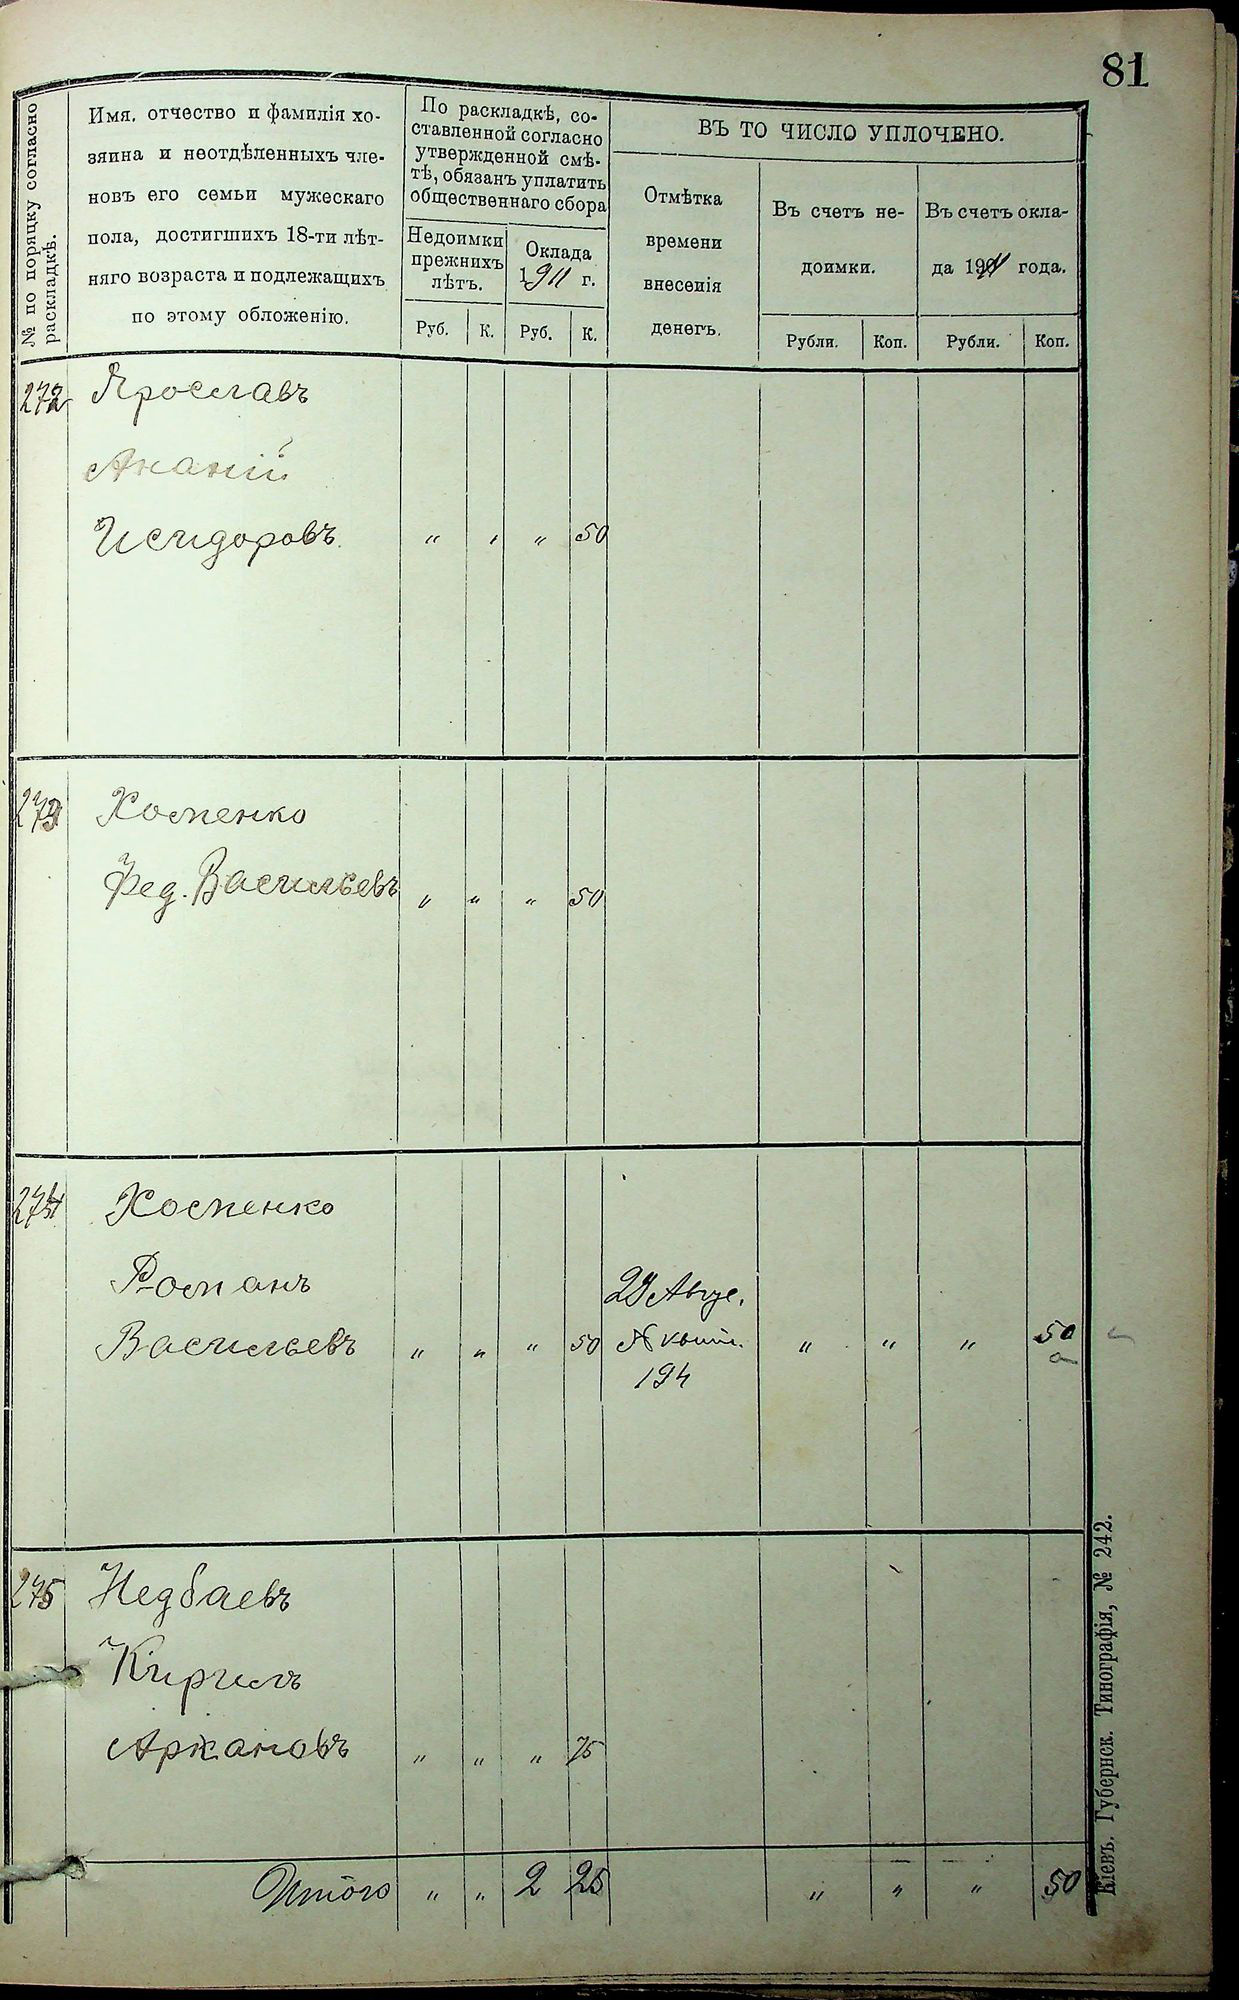 81
№ по поряцку согласно
раскладкѣ.
Имя, отчество и фамилія хо-
зяина и неотдѣленныхъ чле-
новъ его семьи мужескаго
пола, достигшихъ 18-ти лѣт-
няго возраста и подлежащихъ
по этому обложенію.
По раскладкѣ, со-
ставленной согласно
утвержденной смѣ-
тѣ, обязанъ уплатить
общественнаго сбора
Недоимки
прежнихъ
лѣтъ.
Оклада
1911 г.
Руб. К. Руб. К.
ВЪ ТО ЧИСЛО УПЛОЧЕНО.
Отмѣтка
времени
внесенія
денегъ.
Въ счетъ не-
доимки.
Въ счетъ окла-
да 1911 года.
Рубли. Коп. Рубли. Коп.
272 Ярославъ
Ананій
Исидоровъ " " " 50
273 Хоменко
Фед. Васильевъ " " " 50
274 Хоменко
Романъ 29 Авгус.
Васильевъ " " " 50 № квит. " " " 50
194
275 Недбаевъ
Кирилъ
" " " 75
Итого " " 2 25 " " " 50
Кіевъ. Губернск. Типографія, № 242.